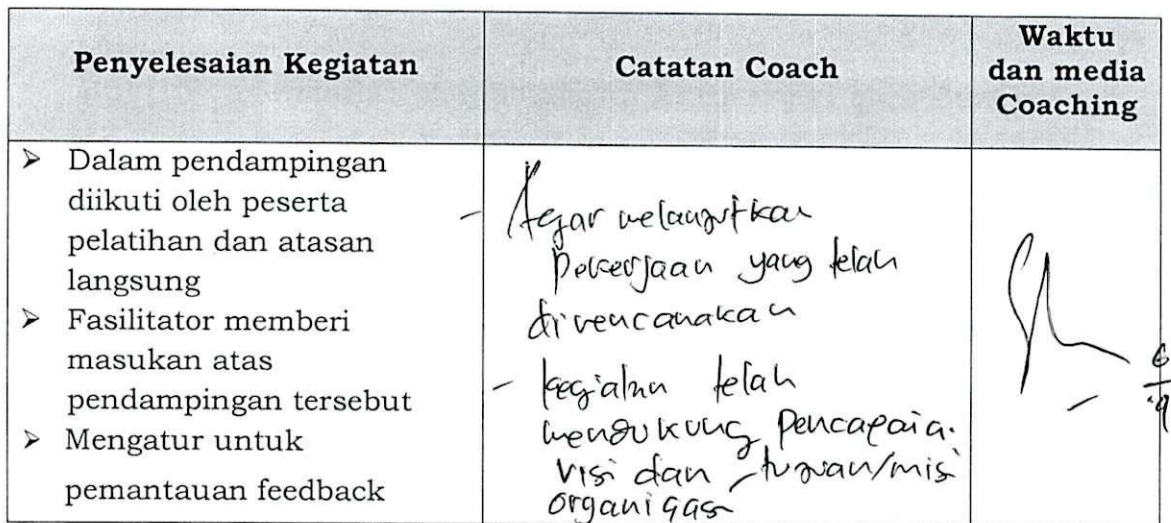 Penyelesaian Kegiatan
Catatan Coach
Waktu
dan media
Coaching
➤ Dalam pendampingan
diikuti oleh peserta
pelatihan dan atasan
langsung
➤ Fasilitator memberi
masukan atas
pendampingan tersebut
➤ Mengatur untuk
pemantauan feedback
- Agar melanjutkan
Pekerjaan yang telah
direncanakan
- kegiatan telah
mendukung pencapaia.
visi dan tujuan/misi
organisasi